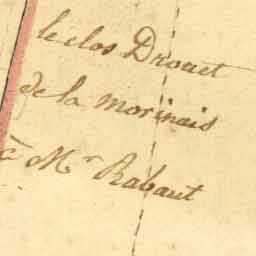 le clos Drouet
de la morinais
à Mr Rabaut